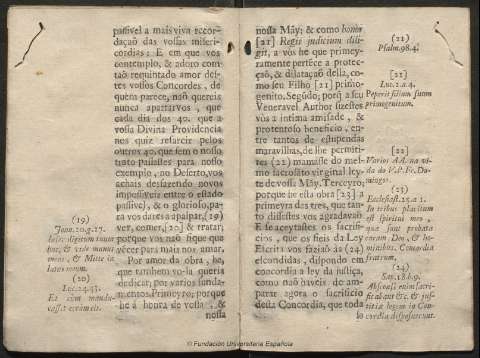 passivel a mais viva recor-
dação das vossas miseri-
cordias: E em que vos
contemplo, & adoro com
tão requintado amor des-
tes vossos Concordes, de
quem parece, naõ quereis
nunca apartarvos, que
cada dia dos 40. que a
vossa Divina Providencia
nos quiz refarcir pelos
outros 40. que sem o nosso
trato passastes para nosso
exemplo, no Deserto, vos
achais desfazendo novos
impossiveis entre o estado
passivel, & o glorioso, pa-
ra vos dares a apalpar, (19)
ver, comer, [20] & tratar;
porque vos naõ fique que
fazer para mais nos amar.
Por amor da obra, he,
que tambem vo-la queria
dedicar, por varios funda-
mentos. Primeyro; porque
he à honra de vossa, &
nossa
(19)
Joan. 20. 9. 27.
(20)
Luc. 24. 43.
nossa Mãy; & como honor
[21] Regis judicium dili-
git, a vòs he que primey-
ramente pertence a protec-
çaõ, & dilataçaõ della, co-
mo seu Filho [21] primo-
genito. Segũdo; porq̃ a seu
Veneravel Author fizestes
vòs a intima amisade, &
portentoso beneficio, en-
tre tantos de estupendas
maravilhas, de lhe permiti-
res (22) mamasse do mes-
mo sacrosãto virginal ley-
te de vossa Mãy. Terceyro;
porque he esta obra [23] a
primeyra das tres, que tan-
to dissestes vos agradavaõ
E se aceytastes os sacrifi-
cios, que os fieis da Ley
Escrita vos faziaõ às (24)
escondidas, dispondo em
concordia a ley da justiça,
como naõ haveis de am-
parar agora o sacrificio
desta Concordia, que toda
(21)
Psalm. 98. 4.
(21)
Luc. 2. a. 4.
Peperit filium suum
primogenitum.
(22)
Varios AA. na vi-
da do V. P. Fr. Do-
mingo.
(23)
Ecclesiast. 25. a 1.
In tribus placitum
est spiritui meo,
quæ sunt probata
coram Deo, & ho-
minibus. Concordia
fratrum,
(24)
Sap. 18. 6. 9.
Absconsè enim sacri-
ficabant &c. & jus-
titiæ legem in Con-
cordia disposuerunt.
© Fundación Universitaria Española